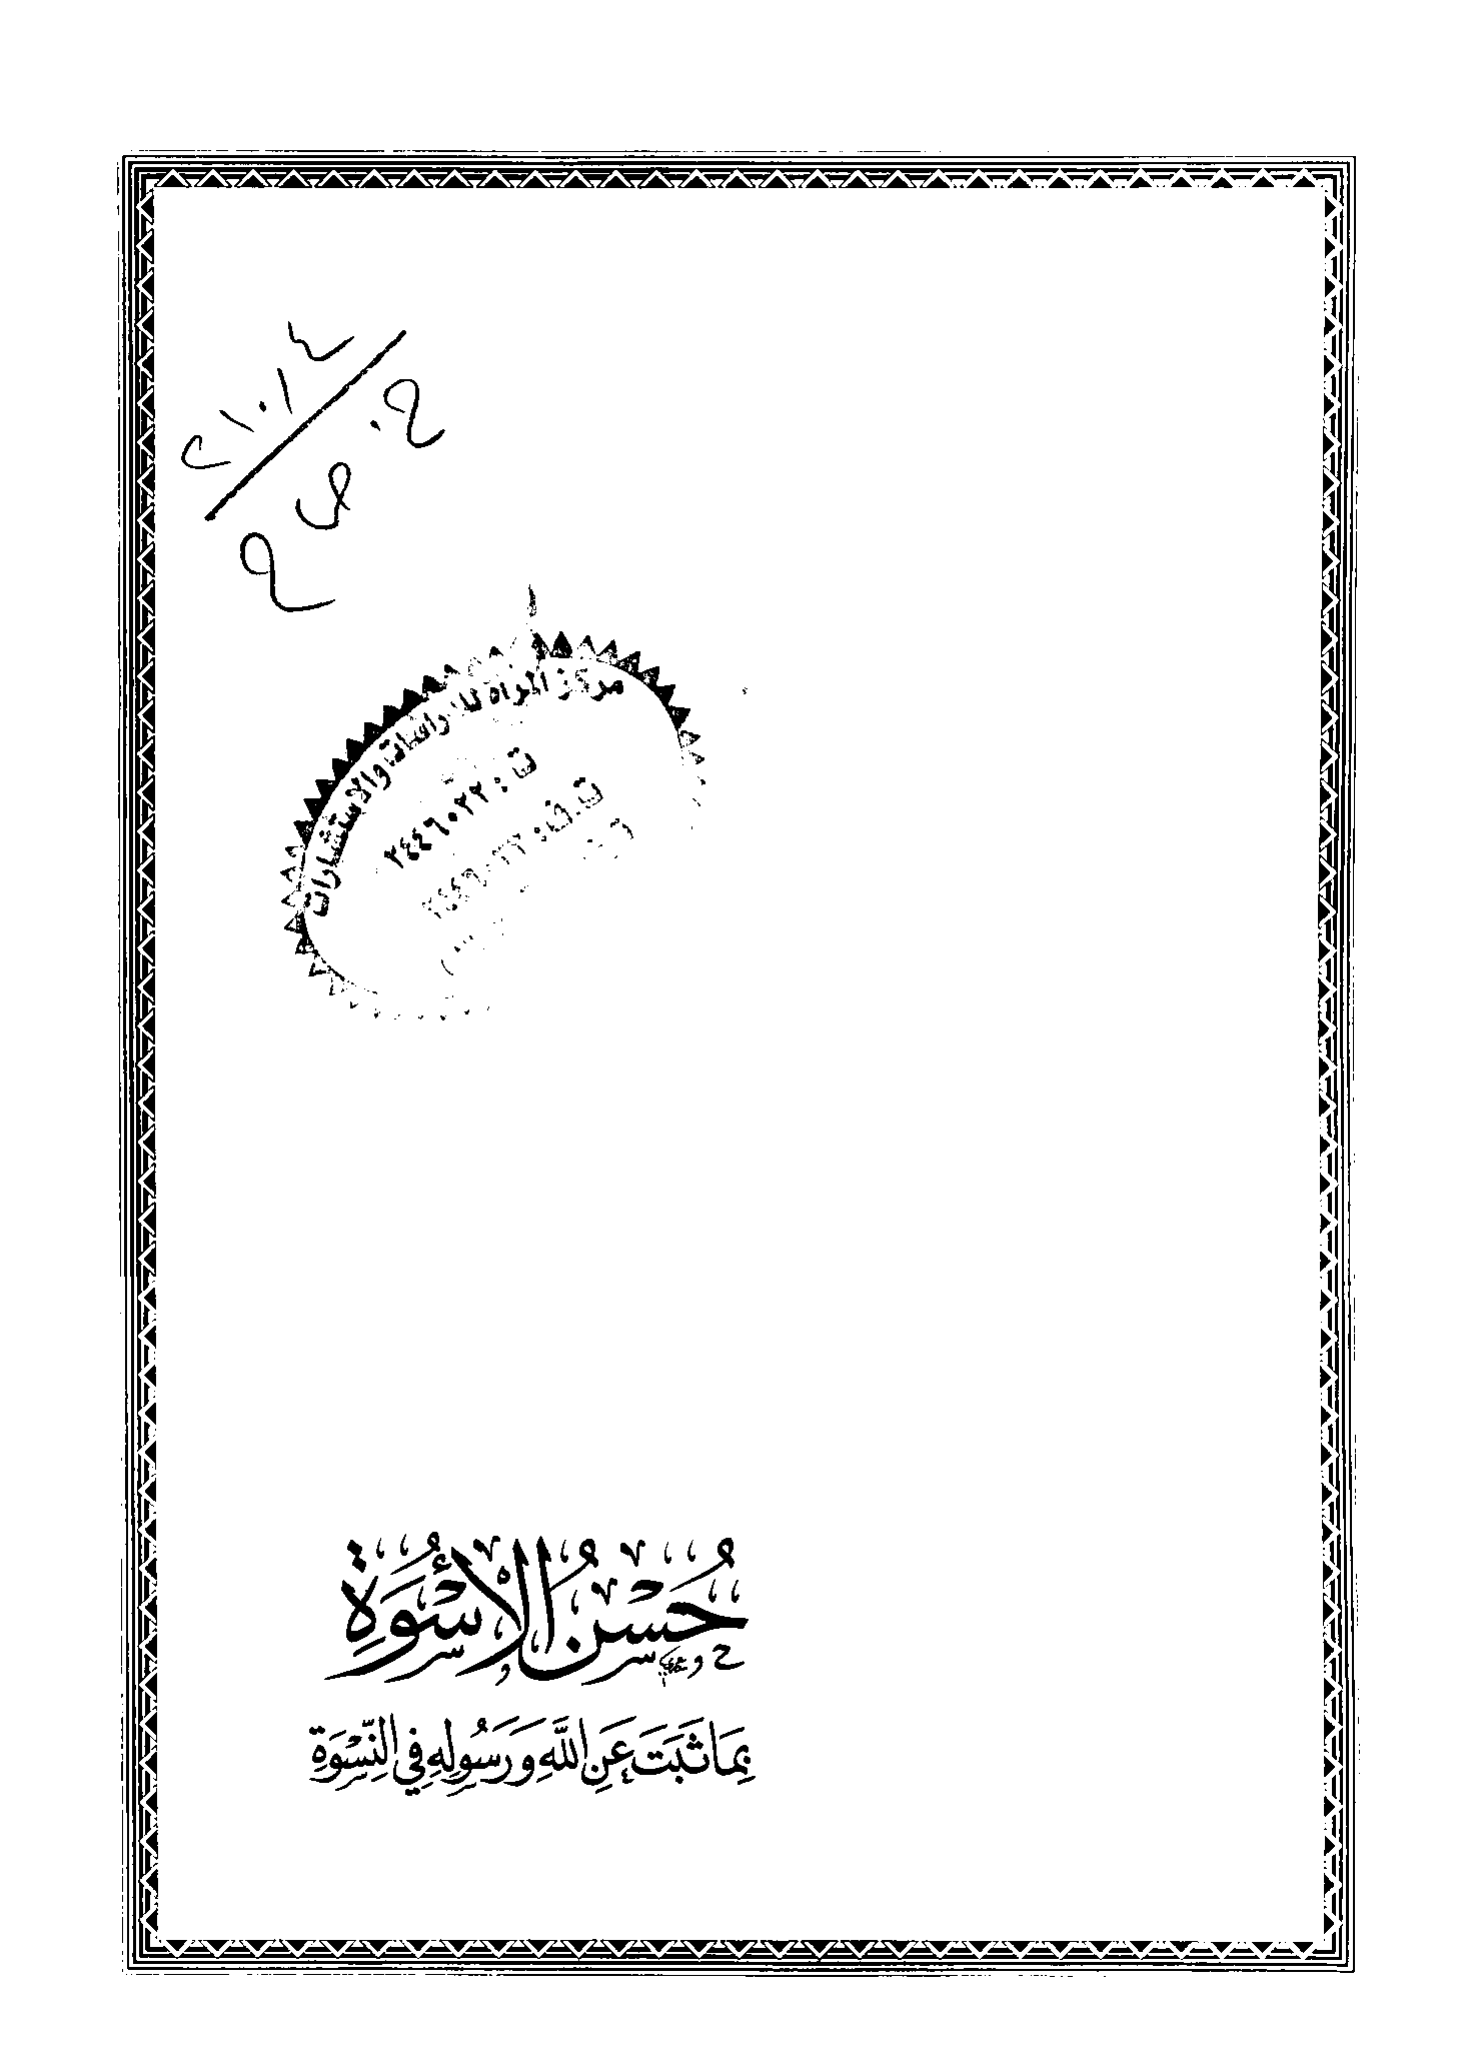 مركز المرأة للدراسات والاستشارات
ت : ٢٤٤٦٠٢٢
ت.ف :
حُسْنُ الْأُسْوَةِ
بِمَا ثَبَتَ عَنِ اللَّهِ وَرَسُولِهِ فِي النِّسْوَةِ